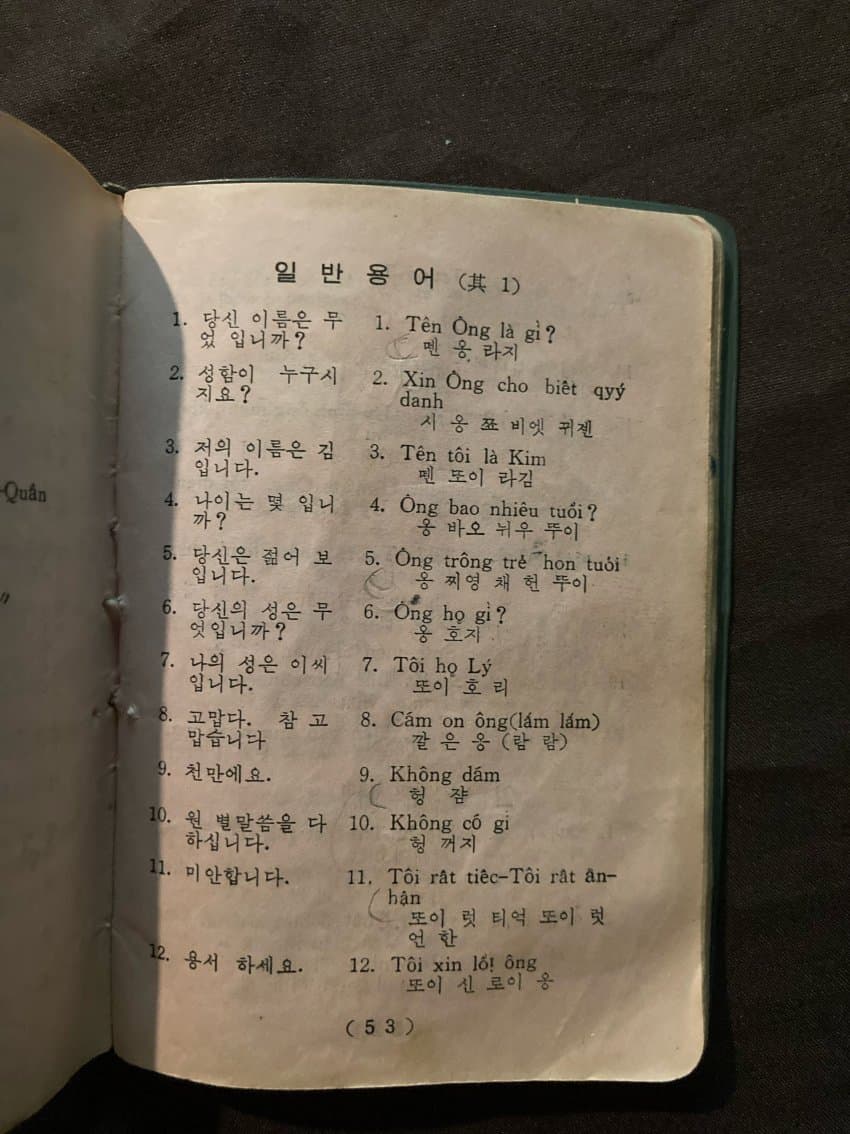 -Quân
"
일 반 용 어 (其 1)
1. 당신 이름은 무
었 입니까?
1. Tên Ông là gì?
뗀 옹 라지
2. 성함이 누구시
지요?
2. Xin Ông cho biêt qyý
danh
시 옹 쬬 비엣 뀌젠
3. 저의 이름은 김
입니다.
3. Tên tôi là Kim
뗀 또이 라김
4. 나이는 몇 입니
까?
4. Ông bao nhiêu tuổi?
옹 바오 뉘우 뚜이
5. 당신은 젊어 보
입니다.
5. Ông trông trẻ hon tuổi
옹 찌영 채 헌 뚜이
6. 당신의 성은 무
엇입니까?
6. Ông họ gì?
옹 호지
7. 나의 성은 이씨
입니다.
7. Tôi họ Lý
또이 호 리
8. 고맙다. 참 고
맙습니다
8. Cám on ông(lắm lắm)
깔 은 옹 (람 람)
9. 천만에요.
9. Không dám
헝 쟘
10. 원 별말씀을 다
하십니다.
10. Không có gì
헝 꺼지
11. 미안합니다.
11. Tôi rât tiêc-Tôi rât ân-
hận
또이 럿 티억 또이 럿
언 한
12. 용서 하세요.
12. Tôi xin lổ! ông
또이 신 로이 옹
(53)